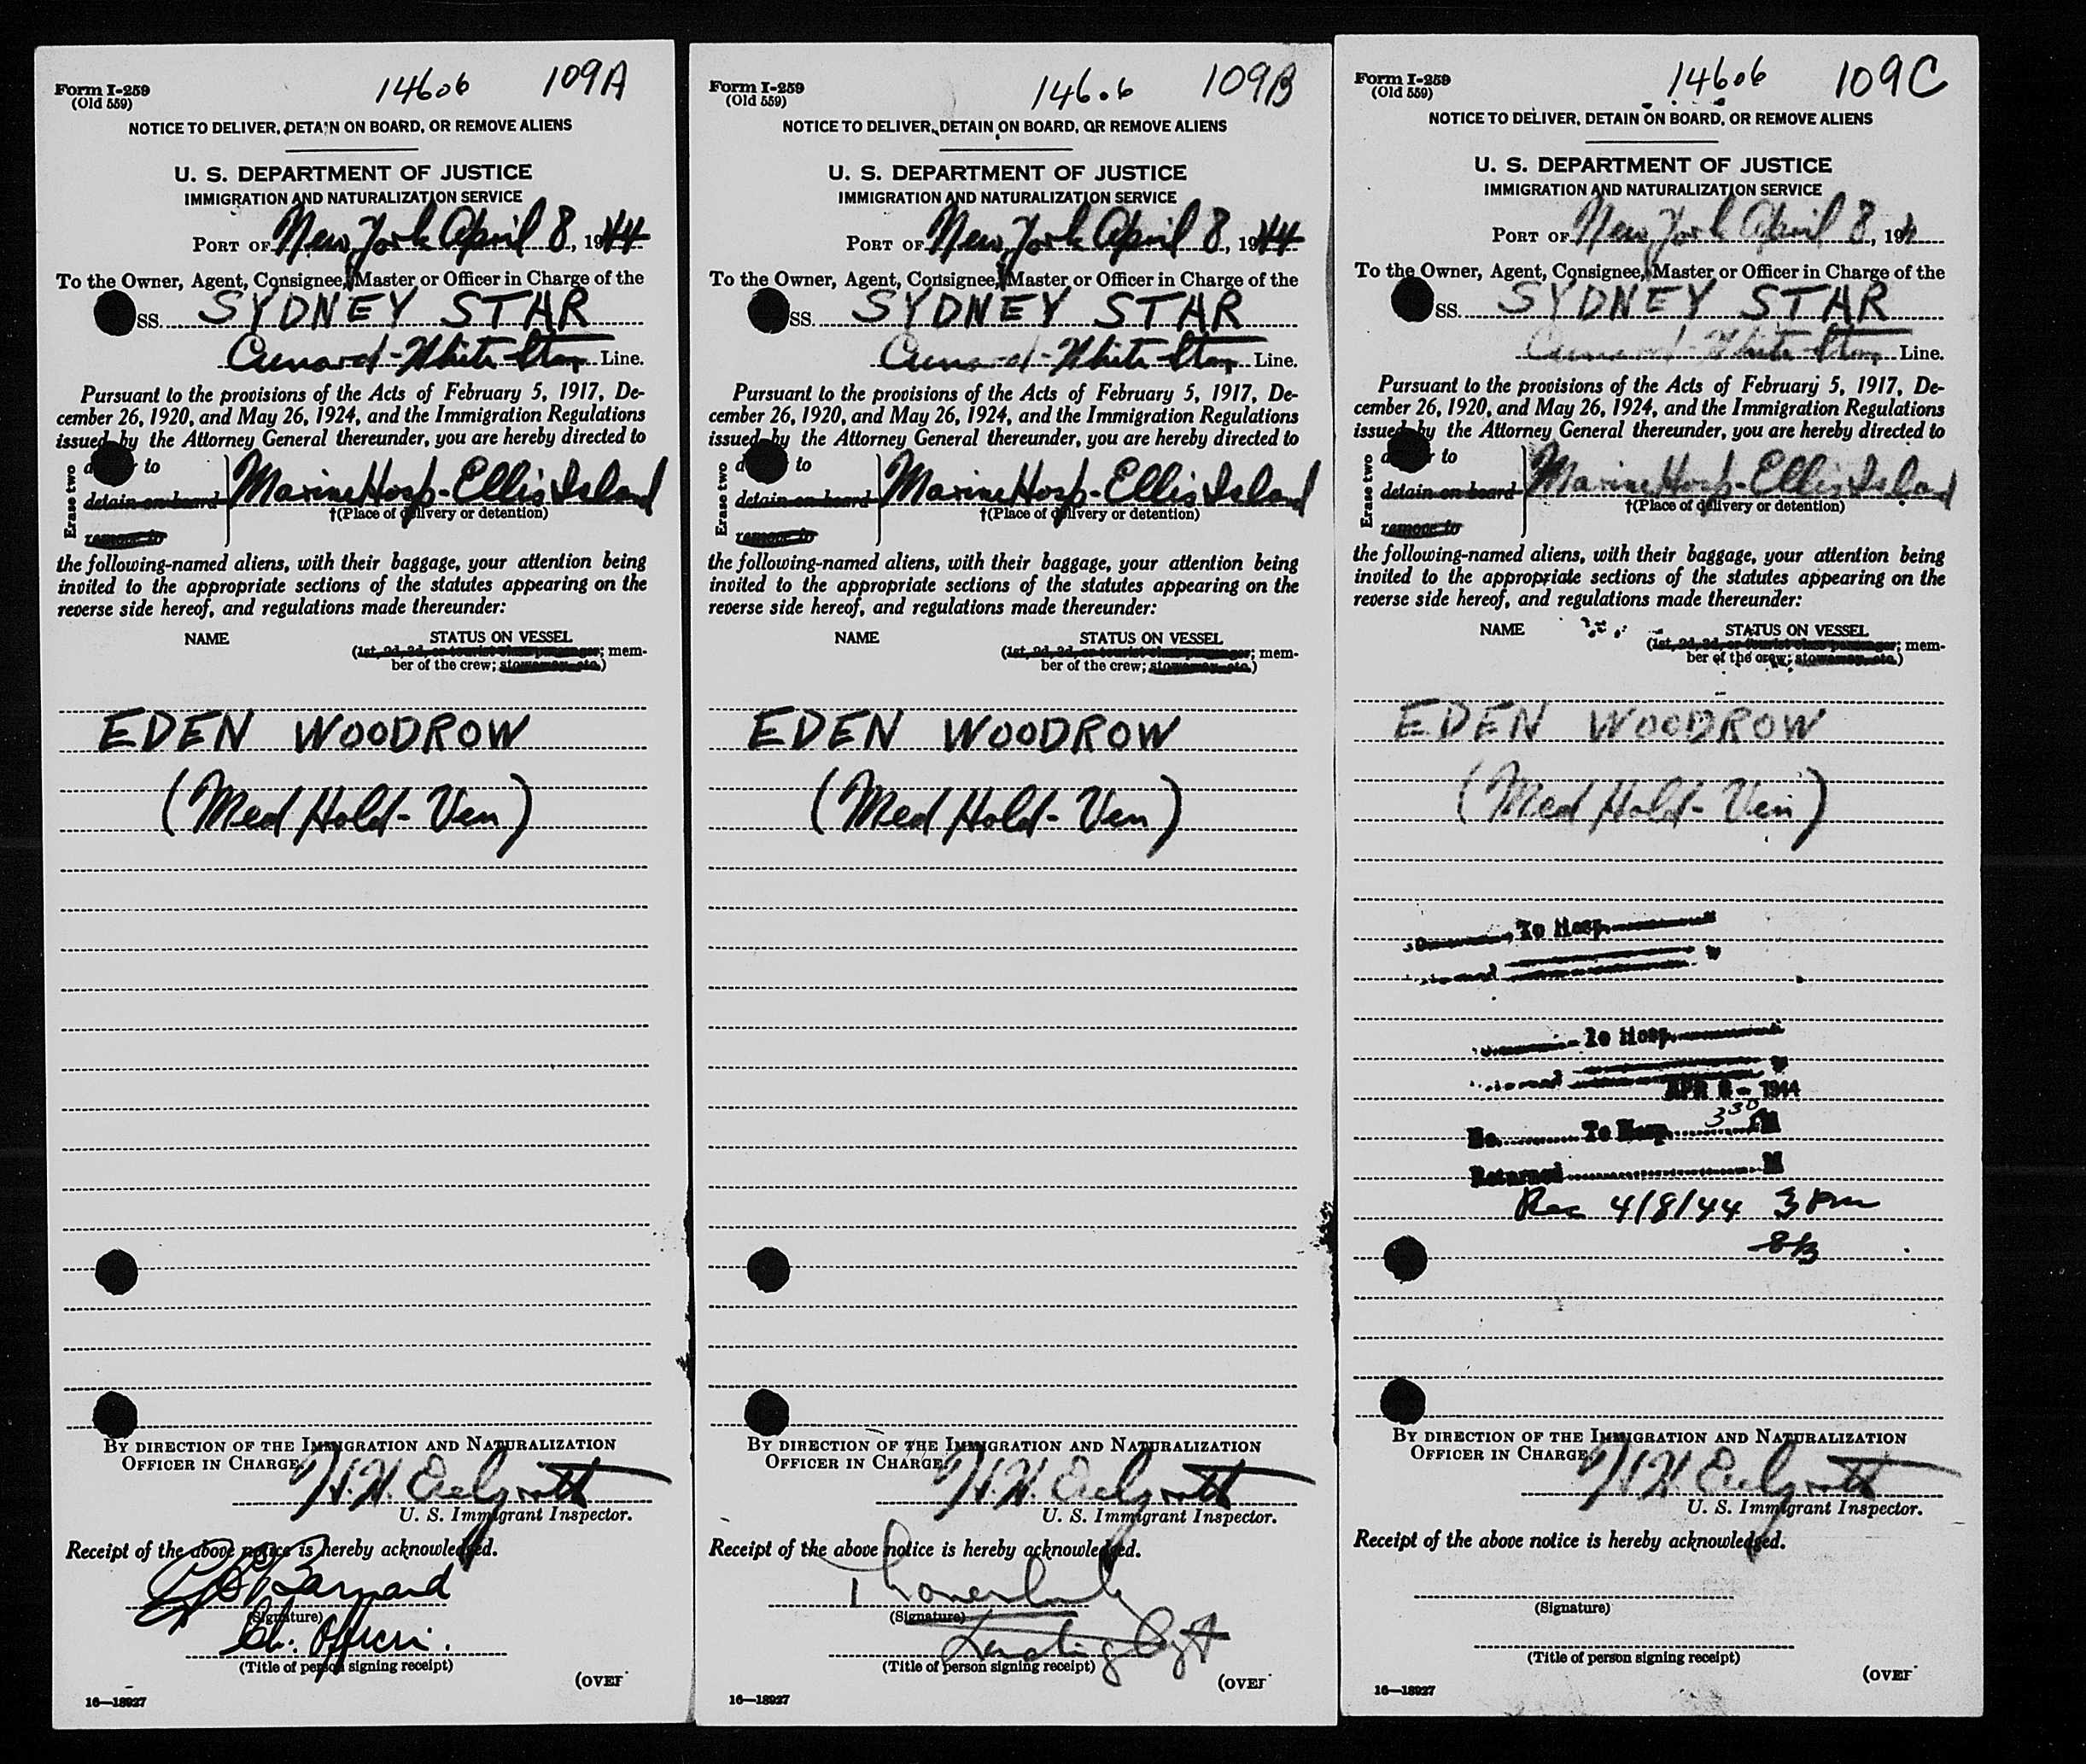 Form I-259
(Old 559)
14606 109A
NOTICE TO DELIVER, DETAIN ON BOARD, OR REMOVE ALIENS
U. S. DEPARTMENT OF JUSTICE
IMMIGRATION AND NATURALIZATION SERVICE
PORT OF New York April 8, 1944
To the Owner, Agent, Consignee, Master or Officer in Charge of the
SS. SYDNEY STAR
Cunard-White Star Line.
Pursuant to the provisions of the Acts of February 5, 1917, De-
cember 26, 1920, and May 26, 1924, and the Immigration Regulations
issued by the Attorney General thereunder, you are hereby directed to
Erase two
to
detain on board
remove to
Marine Hosp-Ellis Island
†(Place of delivery or detention)
the following-named aliens, with their baggage, your attention being
invited to the appropriate sections of the statutes appearing on the
reverse side hereof, and regulations made thereunder:
NAME STATUS ON VESSEL
(1st, 2d, 3d, or tourist class passenger; mem-
ber of the crew; stowaway, etc.)
EDEN WOODROW
(Med Hold-Ven)
BY DIRECTION OF THE IMMIGRATION AND NATURALIZATION
OFFICER IN CHARGE
U. S. Immigrant Inspector.
Receipt of the above notice is hereby acknowledged.
Barnard
(Signature)
Ch. Officer.
(Title of person signing receipt)
(OVER
16—18927
Form I-259
(Old 559)
14606 109B
NOTICE TO DELIVER, DETAIN ON BOARD, OR REMOVE ALIENS
U. S. DEPARTMENT OF JUSTICE
IMMIGRATION AND NATURALIZATION SERVICE
PORT OF New York April 8, 1944
To the Owner, Agent, Consignee, Master or Officer in Charge of the
SS. SYDNEY STAR
Cunard-White Star Line.
Pursuant to the provisions of the Acts of February 5, 1917, De-
cember 26, 1920, and May 26, 1924, and the Immigration Regulations
issued by the Attorney General thereunder, you are hereby directed to
Erase two
to
detain on board
remove to
Marine Hosp-Ellis Island
†(Place of delivery or detention)
the following-named aliens, with their baggage, your attention being
invited to the appropriate sections of the statutes appearing on the
reverse side hereof, and regulations made thereunder:
NAME STATUS ON VESSEL
(1st, 2d, 3d, or tourist class passenger; mem-
ber of the crew; stowaway, etc.)
EDEN WOODROW
(Med Hold-Ven)
BY DIRECTION OF THE IMMIGRATION AND NATURALIZATION
OFFICER IN CHARGE
U. S. Immigrant Inspector.
Receipt of the above notice is hereby acknowledged.
(Signature)
Landing Agt
(Title of person signing receipt)
(OVER
16—18927
Form I-259
(Old 559)
14606 109C
NOTICE TO DELIVER, DETAIN ON BOARD, OR REMOVE ALIENS
U. S. DEPARTMENT OF JUSTICE
IMMIGRATION AND NATURALIZATION SERVICE
PORT OF New York April 8, 194
To the Owner, Agent, Consignee, Master or Officer in Charge of the
SS. SYDNEY STAR
Cunard-White Star Line.
Pursuant to the provisions of the Acts of February 5, 1917, De-
cember 26, 1920, and May 26, 1924, and the Immigration Regulations
issued by the Attorney General thereunder, you are hereby directed to
Erase two
to
detain on board
remove to
Marine Hosp-Ellis Island
†(Place of delivery or detention)
the following-named aliens, with their baggage, your attention being
invited to the appropriate sections of the statutes appearing on the
reverse side hereof, and regulations made thereunder:
NAME STATUS ON VESSEL
(1st, 2d, 3d, or tourist class passenger; mem-
ber of the crew; stowaway, etc.)
EDEN WOODROW
(Med Hold-Ven)
To Hosp.
To Hosp.
APR 8 - 1944
No. To Hosp. 3 30 PM
Returned M
Rec 4/8/44 3 Pm
BY DIRECTION OF THE IMMIGRATION AND NATURALIZATION
OFFICER IN CHARGE
U. S. Immigrant Inspector.
Receipt of the above notice is hereby acknowledged.
(Signature)
(Title of person signing receipt)
(OVER
16—18927